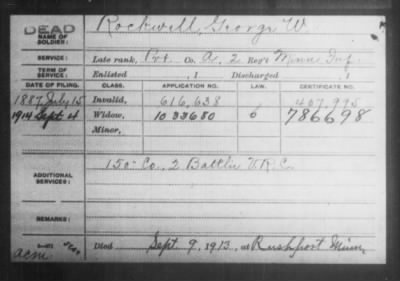 DEAD
NAME OF SOLDIER: Rockwell, George W
SERVICE: Late rank, Pvt. Co. A, 2 Reg't Minn Inf.
TERM OF SERVICE: Enlisted , 1 Discharged , 1
DATE OF FILING. CLASS. APPLICATION NO. LAW. CERTIFICATE NO.
1887 July 15 Invalid, 616,638 407,995
1914 Sept 4 Widow, 1033680 6 786698
Minor,
ADDITIONAL SERVICES: 150 Co., 2 Battl'n V.R.C.
REMARKS:
Died Sept. 9, 1913, at Rushfort Minn,
acm